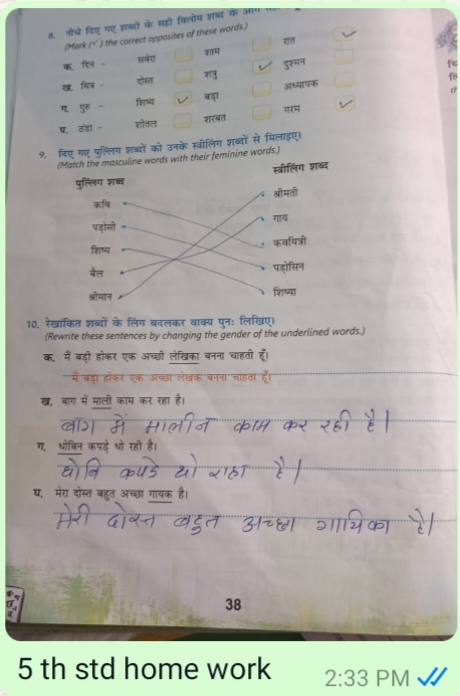 8. नीचे दिए गए शब्दों के सही विलोम शब्द के आगे
(Mark (✓) the correct opposites of these words.)
क. दिन - सवेरा शाम रात ✓
ख. मित्र - दोस्त शत्रु ✓ दुश्मन
ग. गुरु - शिष्य ✓ बड़ा अध्यापक
घ. ठंडा - शीतल शरबत गरम ✓
9. दिए गए पुल्लिंग शब्दों को उनके स्त्रीलिंग शब्दों से मिलाइए।
(Match the masculine words with their feminine words.)
पुल्लिंग शब्द स्त्रीलिंग शब्द
कवि श्रीमती
पड़ोसी गाय
शिष्य कवयित्री
बैल पड़ोसिन
श्रीमान शिष्या
10. रेखांकित शब्दों के लिंग बदलकर वाक्य पुनः लिखिए।
(Rewrite these sentences by changing the gender of the underlined words.)
क. मैं बड़ी होकर एक अच्छी लेखिका बनना चाहती हूँ।
मैं बड़ा होकर एक अच्छा लेखक बनना चाहता हूँ।
ख. बाग में माली काम कर रहा है।
बाग में मालीन काम कर रही है।
ग. धोबिन कपड़े धो रही है।
धोबि कपडे धो राहा है।
घ. मेरा दोस्त बहुत अच्छा गायक है।
मेरी दोस्त बहुत अच्छा गायिका है।
38
5 th std home work
2:33 PM